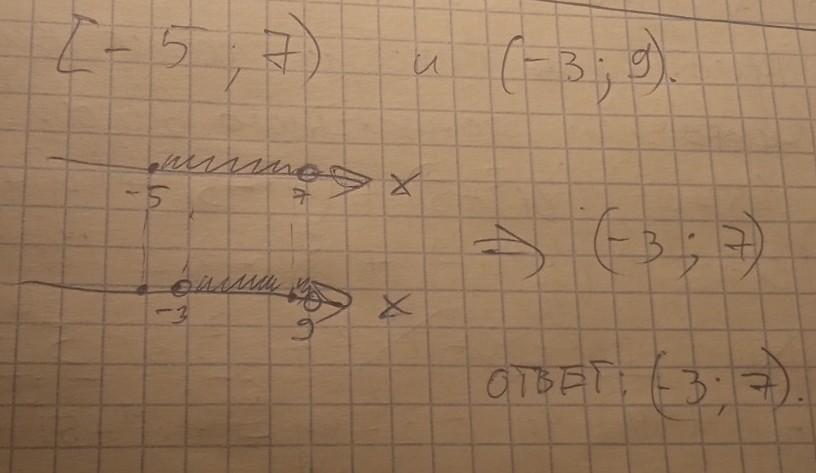 [-5; 7) и (-3; 9).
-5 7 x
⇒ (-3; 7)
-3 9 x
ОТВЕТ: (-3; 7).